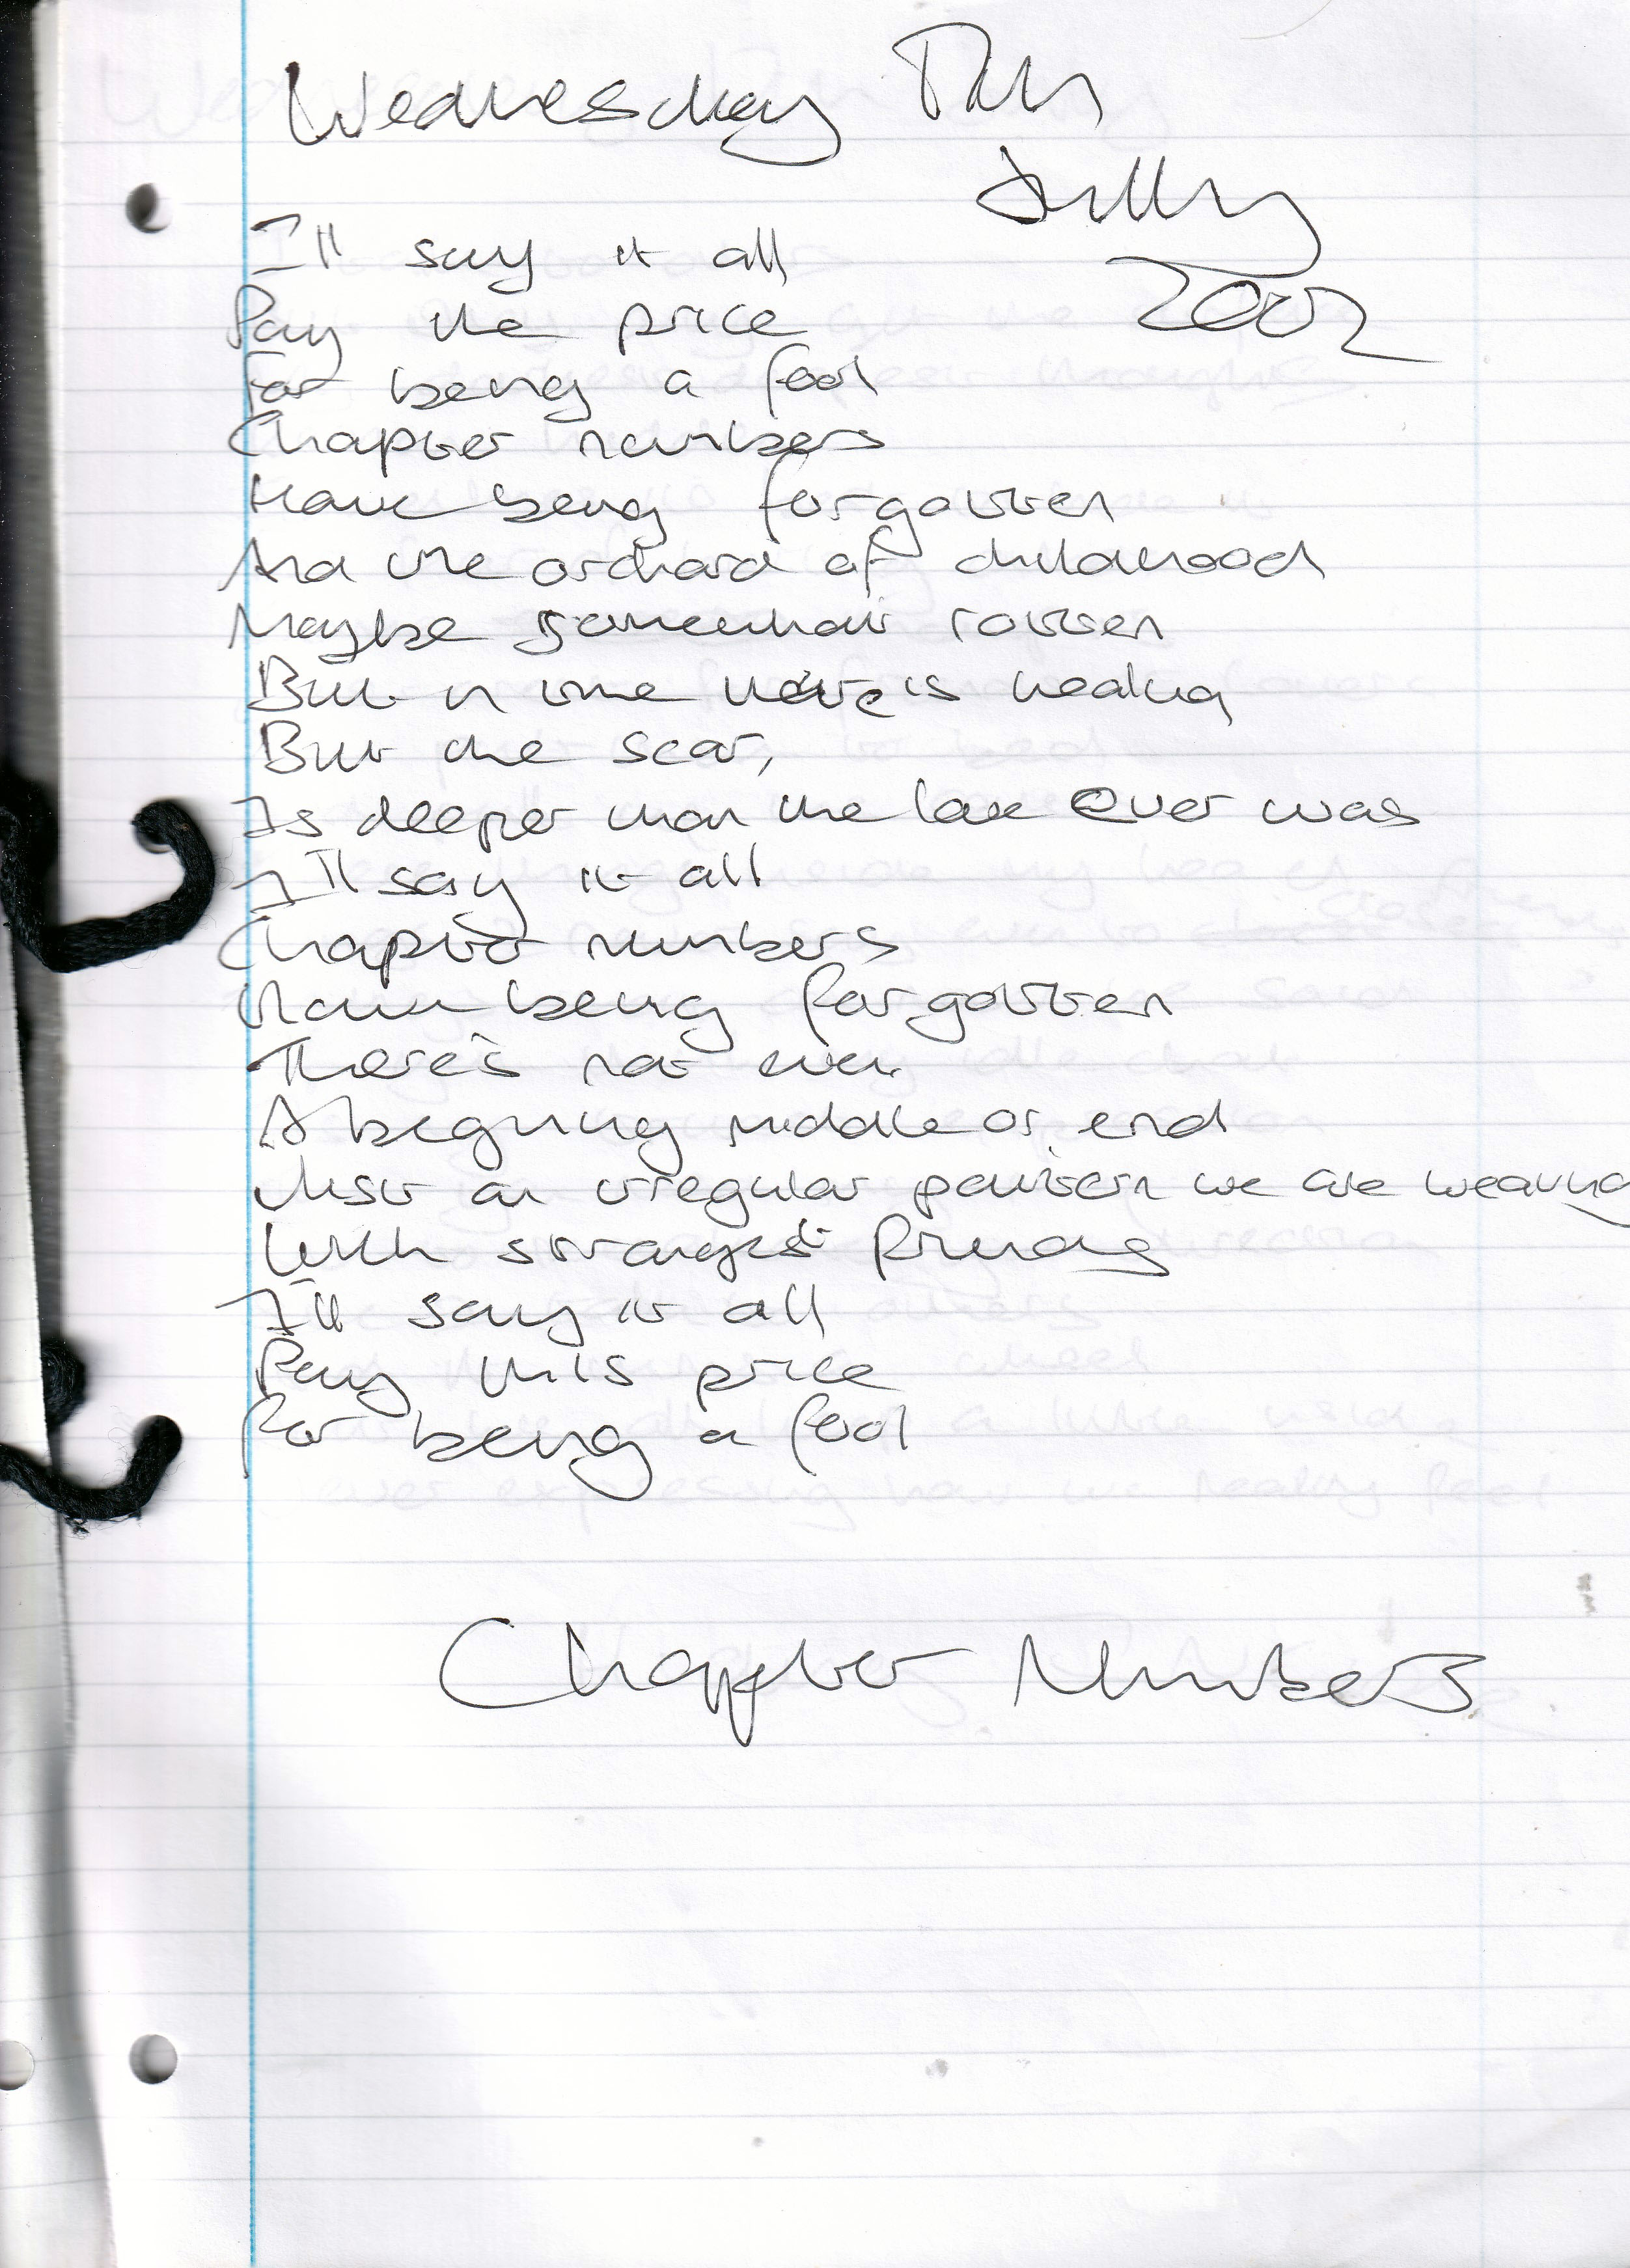 Wednesday
July
2002
I'll say it all
Pay the price
For being a fool
Chapter numbers
Have being forgotten
And the orchard of childhood
Maybe somewhat rotten
But in time there is healing
But the scar,
Is deeper than the lake ever was
I'll say it all
Chapter numbers
Have being forgotten
There's not even
A begining middle or end
Just an irregular pattern we are weaving
With strangest
I'll say it all
Pay this price
For being a fool
Chapter Numbers